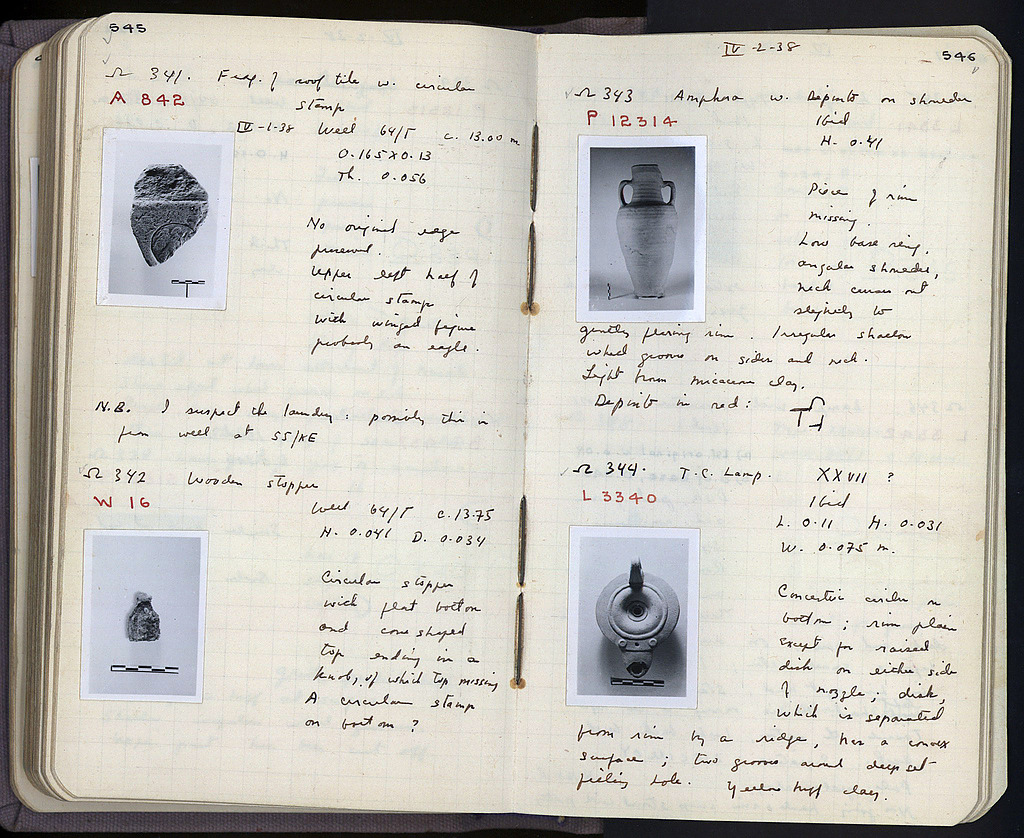 545
Ω 341. Frag. of roof tile w. circular
stamp
A 842
IV-1-38 Well 64/Γ c. 13.00 m
0.165 x 0.13
Th. 0.056
No original edge
preserved.
Upper left half of
circular stamp
with winged figure
probably an eagle.
N.B. I suspect the laundry: possibly this is
from well at 55/ΛE
Ω 342 Wooden stopper
W 16
Well 64/Γ c. 13.75
H. 0.041 D. 0.034
Circular stopper
with flat bottom
and cone shaped
top ending in a
knob, of which top missing
A circular stamp
on bottom?
IV-2-38
546
Ω 343 Amphora w. Dipinto on shoulder
P 12314
Ibid
H. 0.41
Piece of rim
missing.
Low base ring,
angular shoulder,
neck curves out
slightly to
gently flaring rim. Irregular shallow
wheel grooves on sides and neck.
Light brown micaceous clay.
Dipinto in red:
Ω 344. T.C. Lamp. XXVII ?
L 3340
Ibid
L. 0.11 H. 0.031
W. 0.075 m.
Concentric circles on
bottom; rim plain
except for raised
disk on either side
of nozzle; disk,
which is separated
from rim by a ridge, has a convex
surface; two grooves around deep set
filling hole. Yellow buff clay.